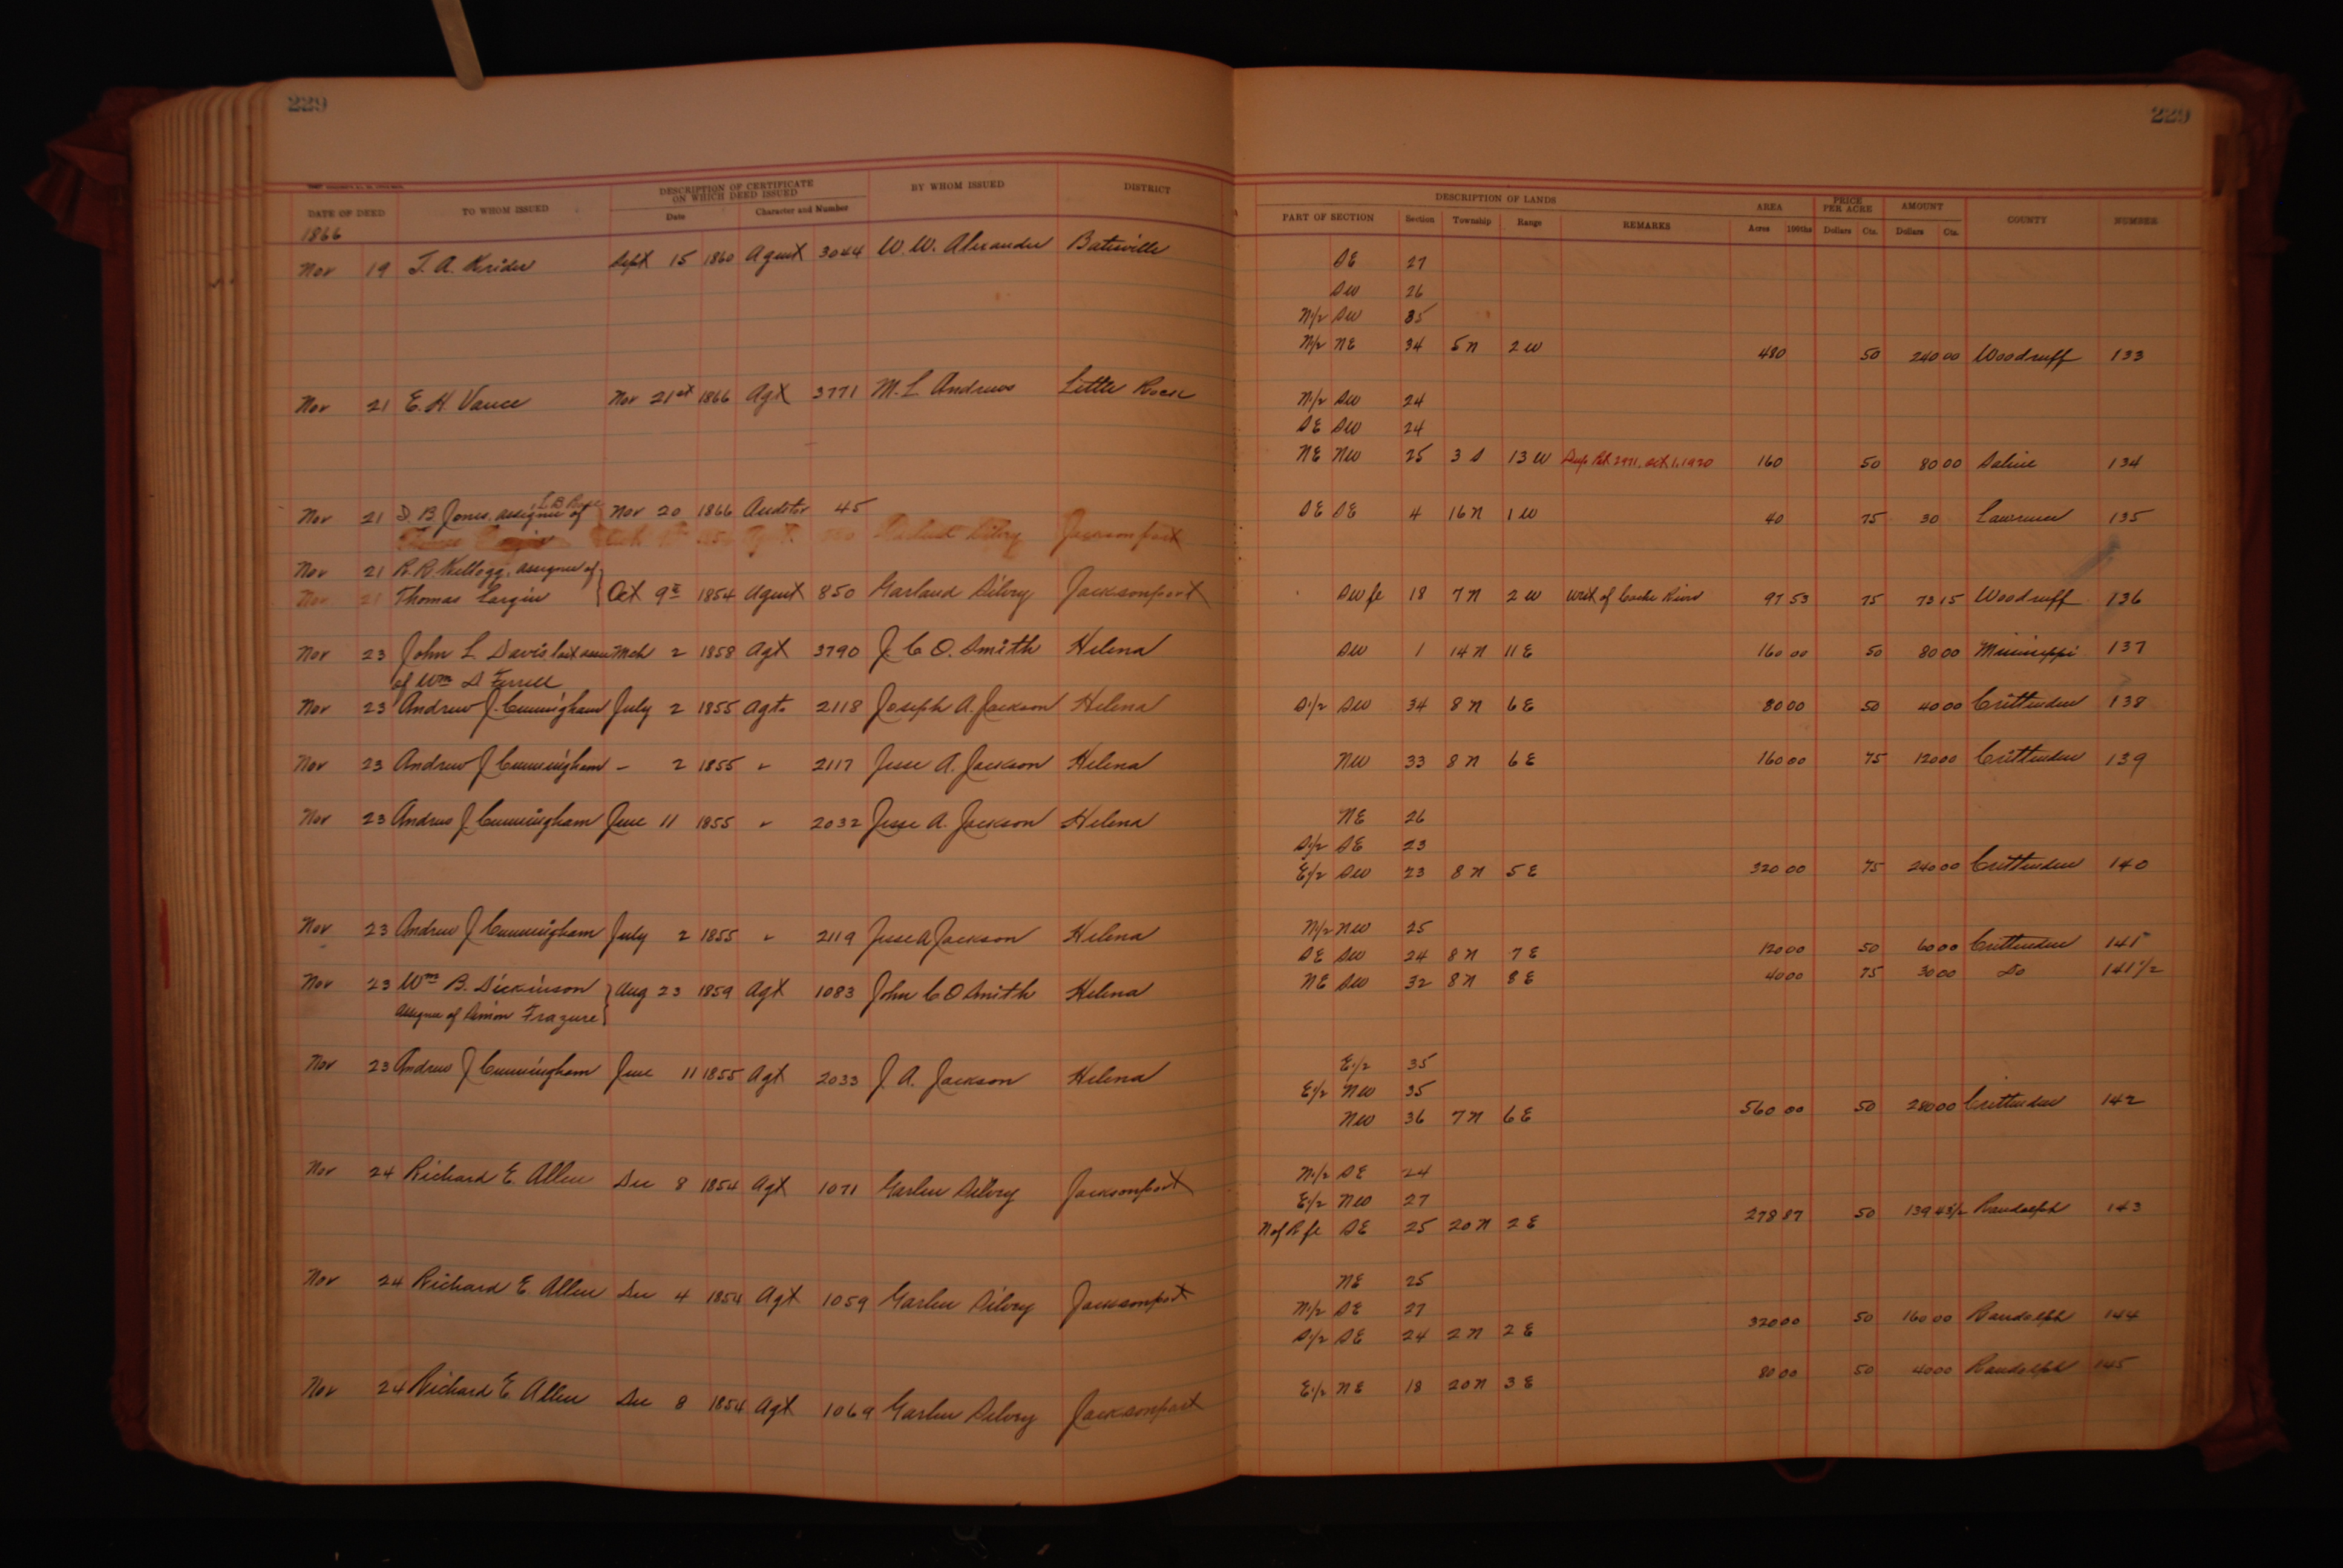 229 229
DESCRIPTION OF CERTIFICATE ON WHICH DEED ISSUED BY WHOM ISSUED DISTRICT DESCRIPTION OF LANDS AREA PRICE PER ACRE AMOUNT
DATE OF DEED TO WHOM ISSUED Date Character and Number PART OF SECTION Section Township Range REMARKS Acres 100ths Dollars Cts. Dollars Cts. COUNTY NUMBER
1866
Nov 19 J. A. Krider Sept 15 1860 Agent 3044 W. W. Alexander Batesville SE 27
SW 26
N1/2 SW 35
N1/2 NE 34 5 N 2 W 480 50 240 00 Woodruff 133
Nov 21 E. H Vance Nov 21st 1866 Agt 3771 M. L Andrews Little Rock N1/2 SW 24
SE SW 24
NE NW 25 3 S 13 W Dup. Pat. 2971. Oct. 1. 1920 160 50 80 00 Saline 134
Nov 21 D. B Jones, assignee of Nov 20 1866 Auditor 45 SE SE 4 16 N 1 W 40 75 30 Lawrence 135
Jacksonport
Nov 21 R. R Kellogg, assignee of
Nov 21 Thomas Largin Oct 9th 1854 Agent 850 Garland Silvry Jacksonport SW fr 18 7 N 2 W West of Cache River 97 53 75 73 15 Woodruff 136
Nov 23 John L Davis last assee Mch 2 1858 Agt 3790 J. C O. Smith Helena SW 1 14 N 11 E 160 00 50 80 00 Mississippi 137
of Wm S Ferrell
Nov 23 Andrew J. Cunningham July 2 1855 Agt. 2118 Joseph A. Jackson Helena S1/2 SW 34 8 N 6 E 80 00 50 40 00 Crittenden 138
Nov 23 Andrew J Cunningham " 2 1855 " 2117 Jesse A. Jackson Helena NW 33 8 N 6 E 160 00 75 120 00 Crittenden 139
Nov 23 Andrew J. Cunningham June 11 1855 " 2032 Jesse A. Jackson Helena NE 26
S1/2 SE 23
E1/2 SW 23 8 N 5 E 320 00 75 240 00 Crittenden 140
Nov 23 Andrew J Cunningham July 2 1855 " 2119 Jesse A Jackson Helena N1/2 NW 25
SE SW 24 8 N 7 E 120 00 50 60 00 Crittenden 141
Nov 23 Wm B. Dickinson Aug 23 1859 Agt 1083 John C O Smith Helena NE SW 32 8 N 8 E 40 00 75 30 00 Do 141 1/2
Assignee of Simon Frazure
Nov 23 Andrew J Cunningham June 11 1855 Agt 2033 J. A. Jackson Helena E1/2 35
E1/2 NW 35
NW 36 7 N 6 E 560 00 50 280 00 Crittenden 142
Nov 24 Richard E. Allen Dec 8 1854 Agt 1071 Garlen Silvry Jacksonport N1/2 SE 24
E1/2 NW 27
N of R fr SE 25 20 N 2 E 278 87 50 139 43 1/2 Randolph 143
Nov 24 Richard E Allen Dec 4 1854 Agt 1059 Garlen Silvry Jacksonport NE 25
N1/2 SE 27
S1/2 SE 24 2 N 2 E 320 00 50 160 00 Randolph 144
Nov 24 Richard E Allen Dec 8 1854 Agt 1069 Garlen Silvry Jacksonport E1/2 NE 18 20 N 3 E 80 00 50 40 00 Randolph 145